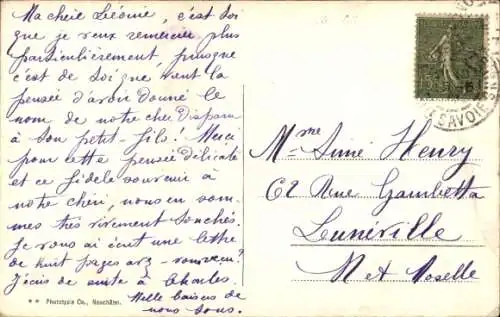 Ma chère Léonie, c'est toi
que je veux remercier plus
particulièrement, puisque
c'est de toi que vient la
pensée d'avoir donné le
nom de notre cher Disparu
à son petit-fils! Merci
pour cette pensée délicate
et ce fidèle souvenir à
notre chéri, nous en som-
mes très vivement touchés.
Je vous ai écrit une lettre
de huit pages
J'écris de suite à Charles.
Mille baisers de
nous tous.
Phototypie Co., Neuchâtel.
Mme Henry
62 Rue Gambetta
Lunéville
Mt et Moselle
SAVOIE